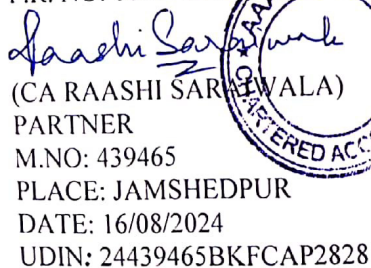 Raashi
(CA RAASHI SARAIWALA)
PARTNER
M.NO: 439465
PLACE: JAMSHEDPUR
DATE: 16/08/2024
UDIN: 24439465BKFCAP2828